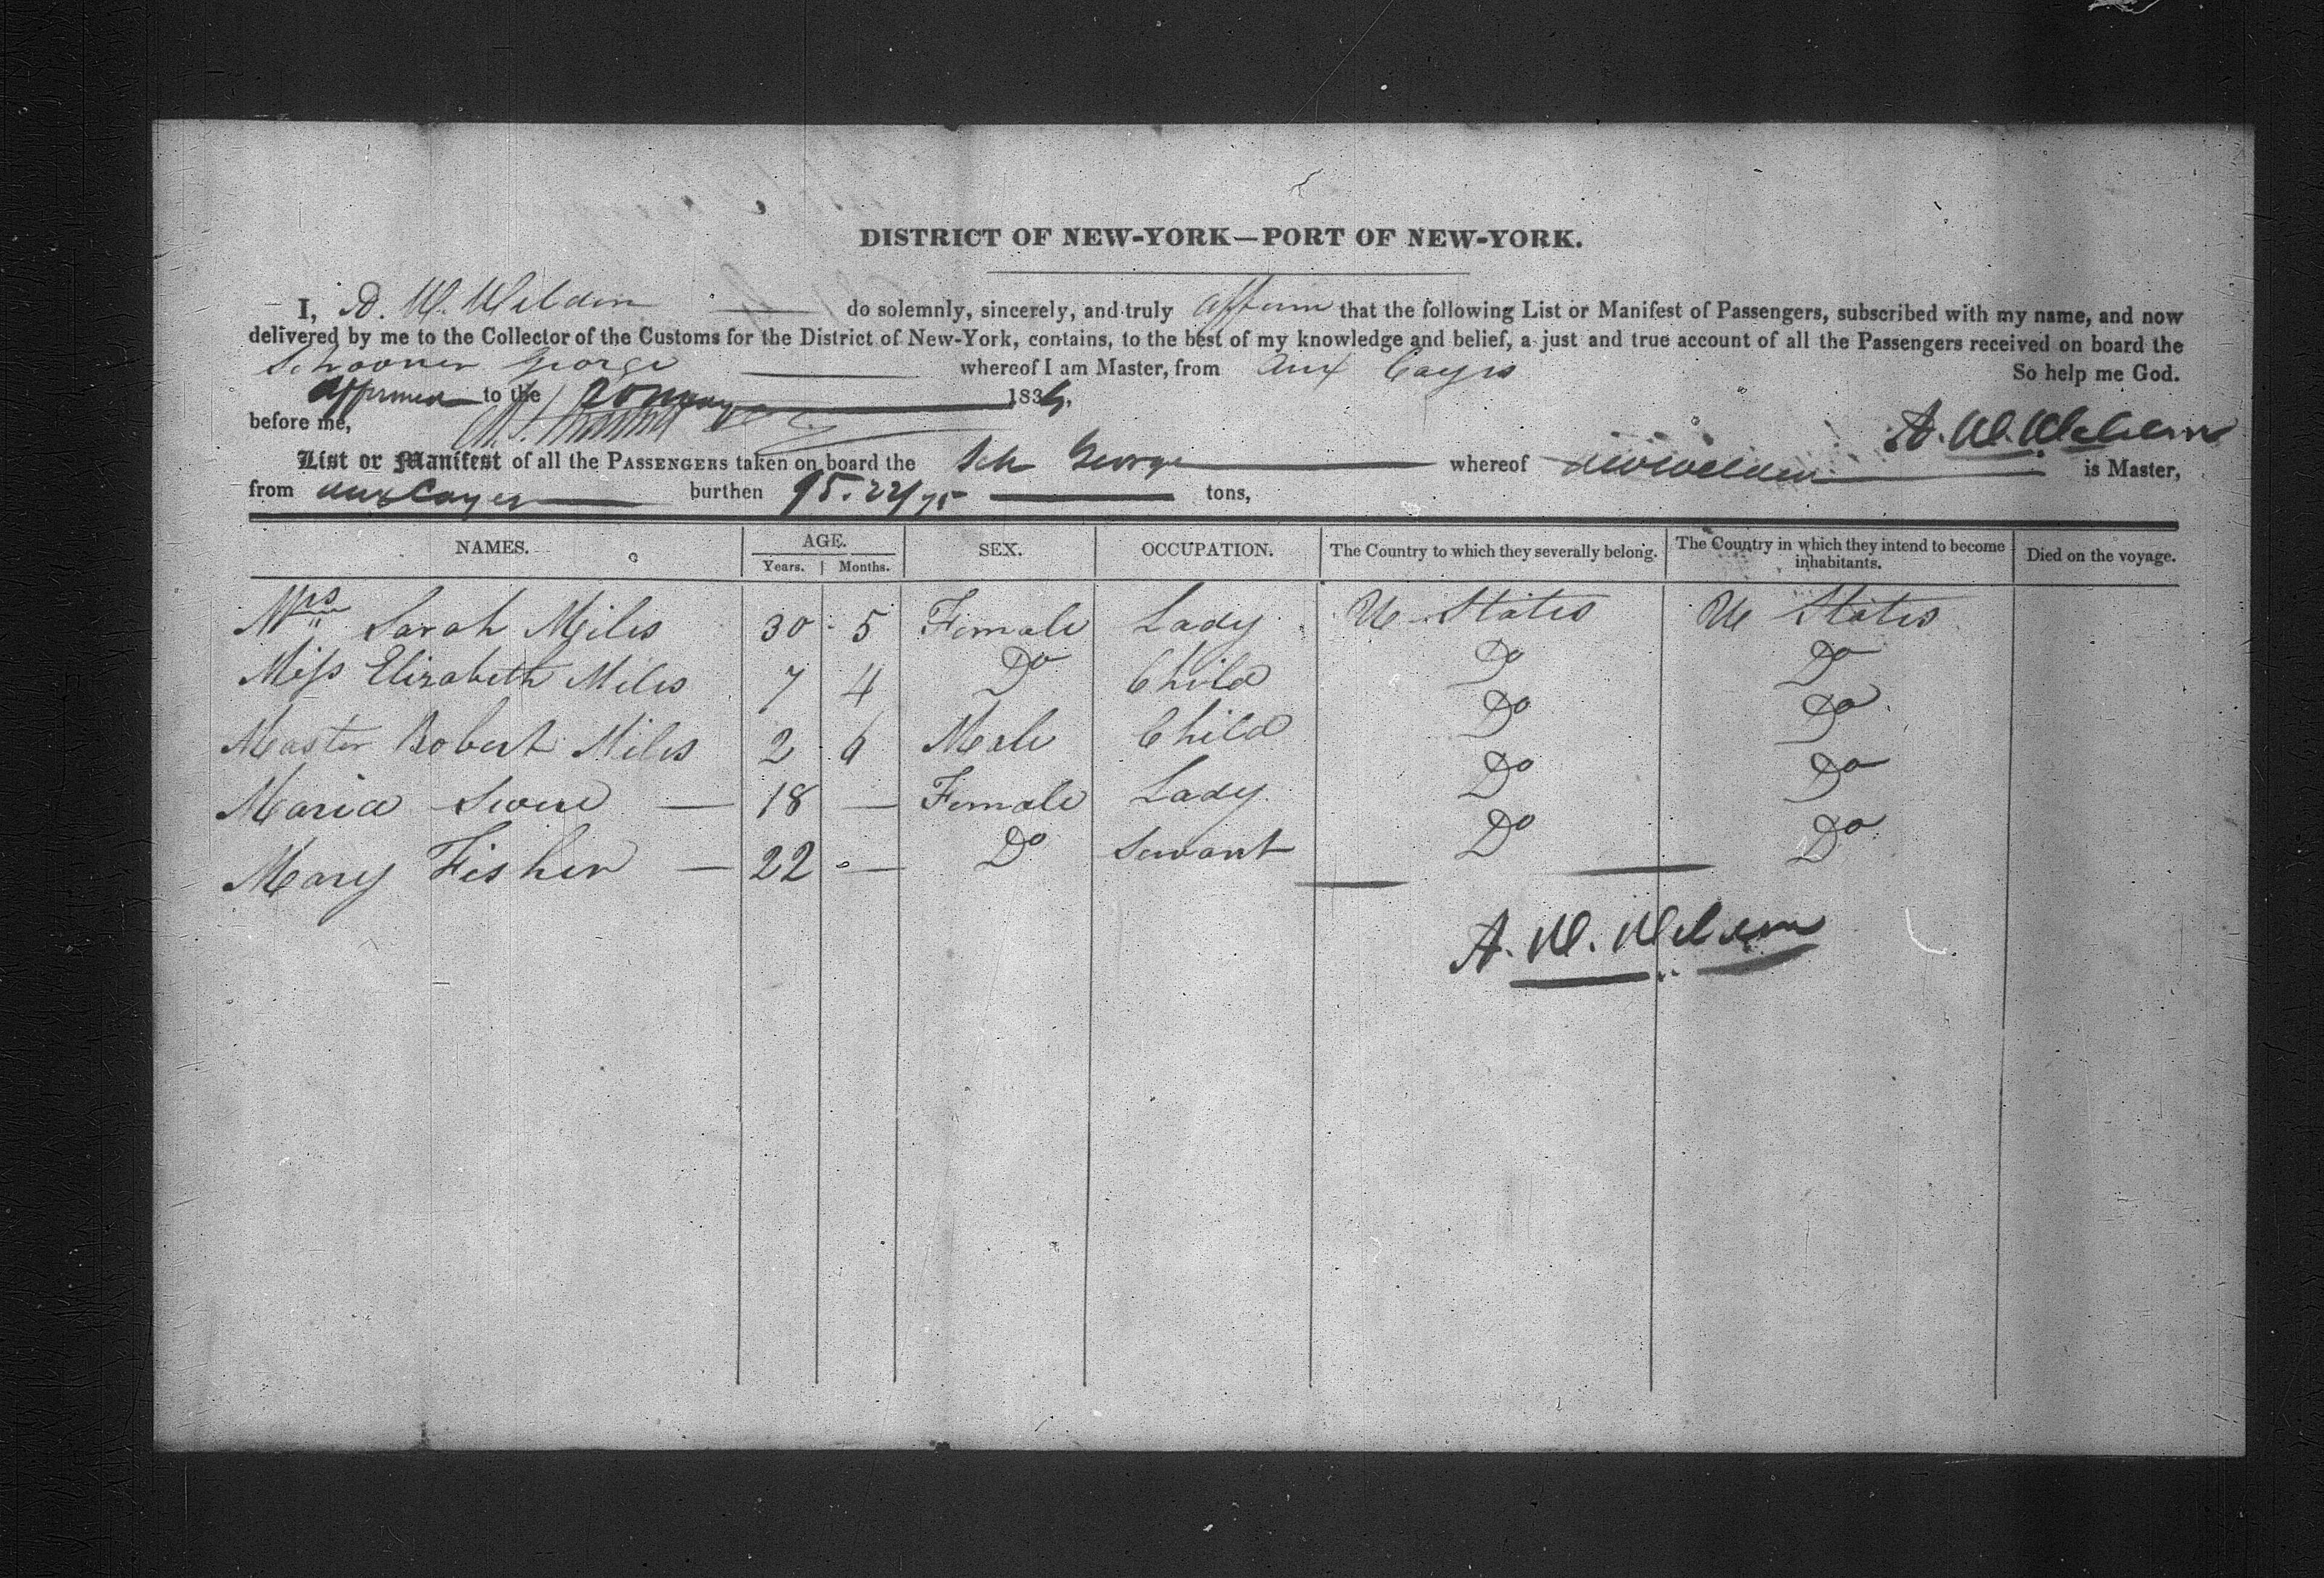 DISTRICT OF NEW-YORK—PORT OF NEW-YORK.
I, A. W. Weldin do solemnly, sincerely, and truly affirm that the following List or Manifest of Passengers, subscribed with my name, and now
delivered by me to the Collector of the Customs for the District of New-York, contains, to the best of my knowledge and belief, a just and true account of all the Passengers received on board the
Schooner George whereof I am Master, from Aux Cayes So help me God.
affirmed to the 20 May 183
before me, A. W. Welden
List or Manifest of all the PASSENGERS taken on board the Sch George whereof A W Welden is Master,
from Aux Cayes burthen 95. 22/95 tons,
NAMES. AGE. SEX. OCCUPATION. The Country to which they severally belong. The Country in which they intend to become inhabitants. Died on the voyage.
Years. Months.
Mrs Sarah Miles 30 5 Female Lady U States U States
Miss Elizabeth Miles 7 4 Do Child Do Do
Master Robert Miles 2 6 Male Child Do Do
Maria 18 — Female Lady Do Do
Mary Fisher — 22 — Do Servant Do Do
A. W. Welden